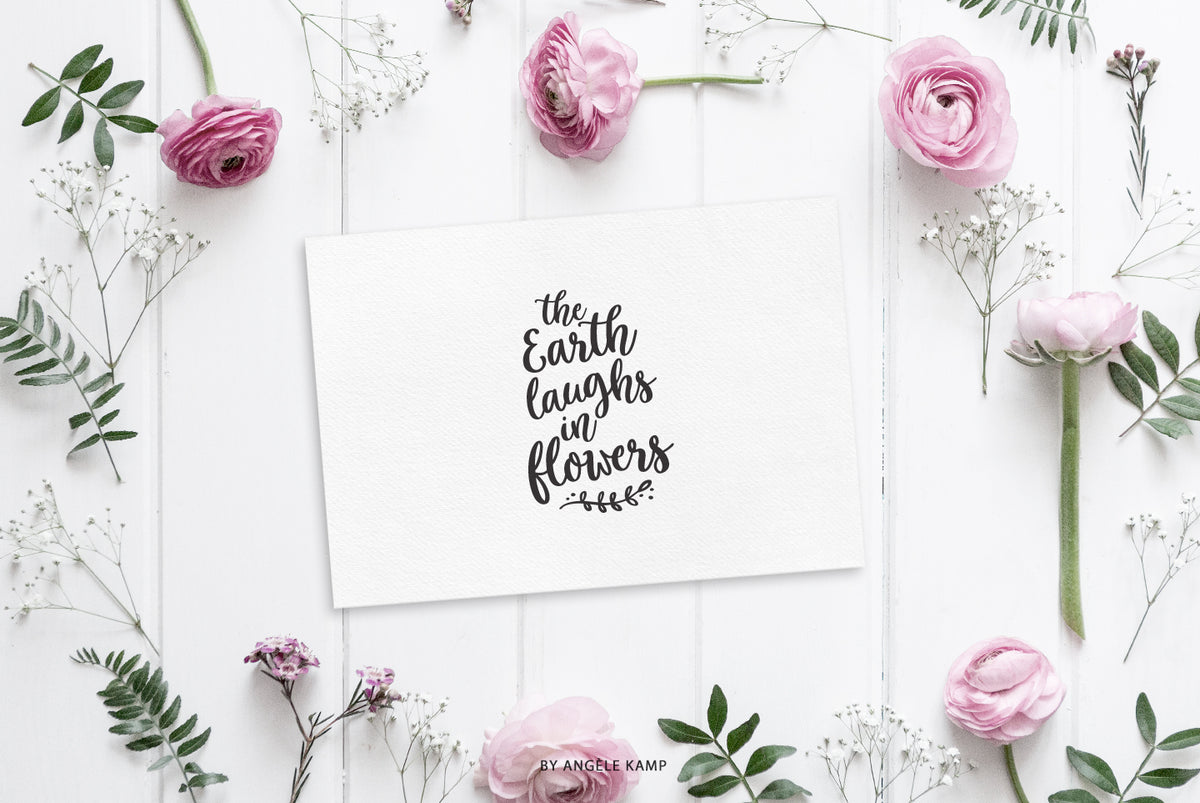 the
Earth
laughs
in
flowers
BY ANGÈLE KAMP